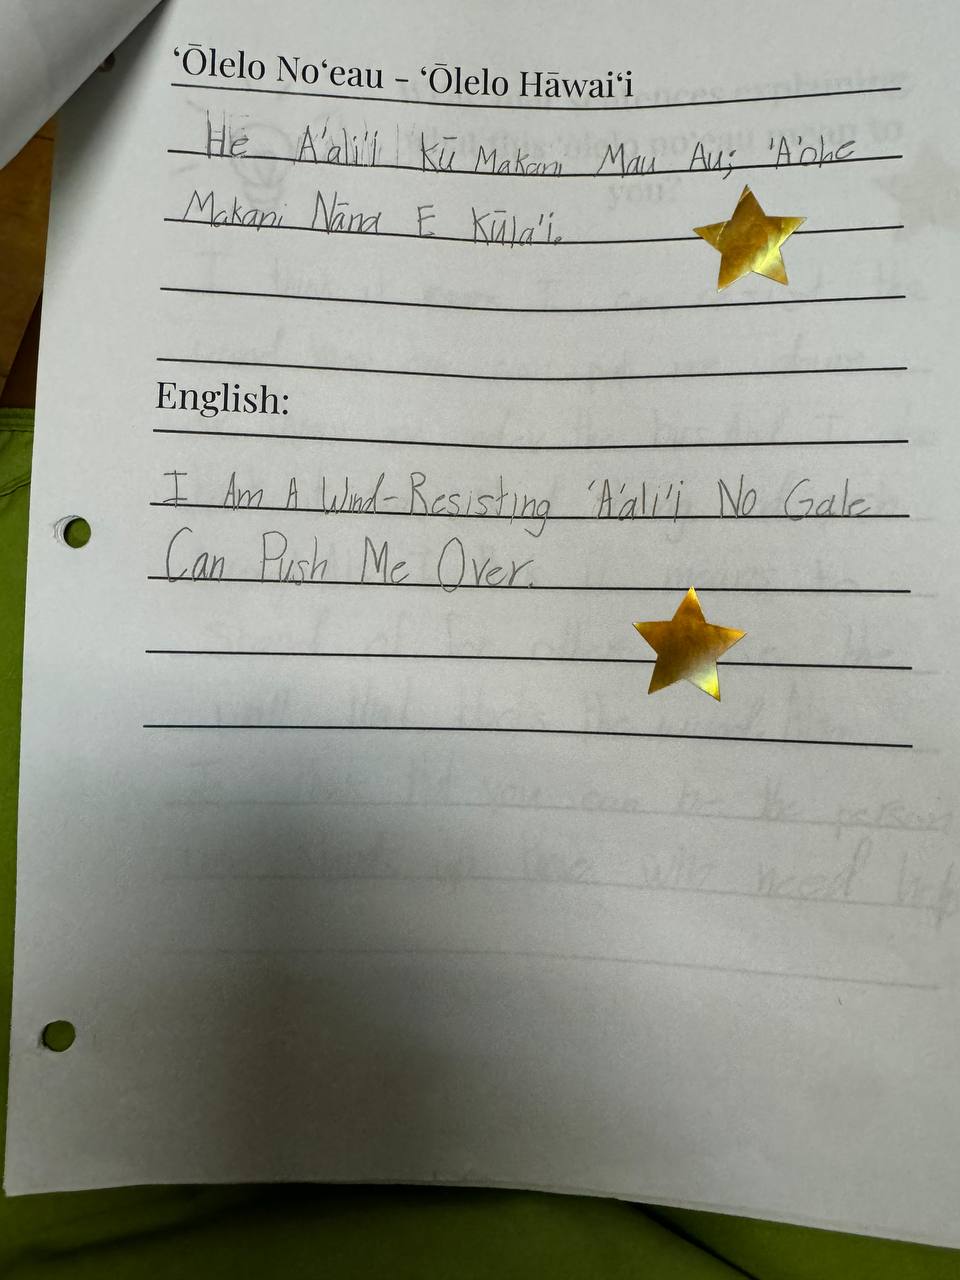 ʻŌlelo Noʻeau – ʻŌlelo Hāwaiʻi
He A'ali'i Kū Makani Mau Au; 'A'ohe
Makani Nāna E Kūla'i.
English:
I Am A Wind-Resisting 'A'ali'i No Gale
Can Push Me Over.